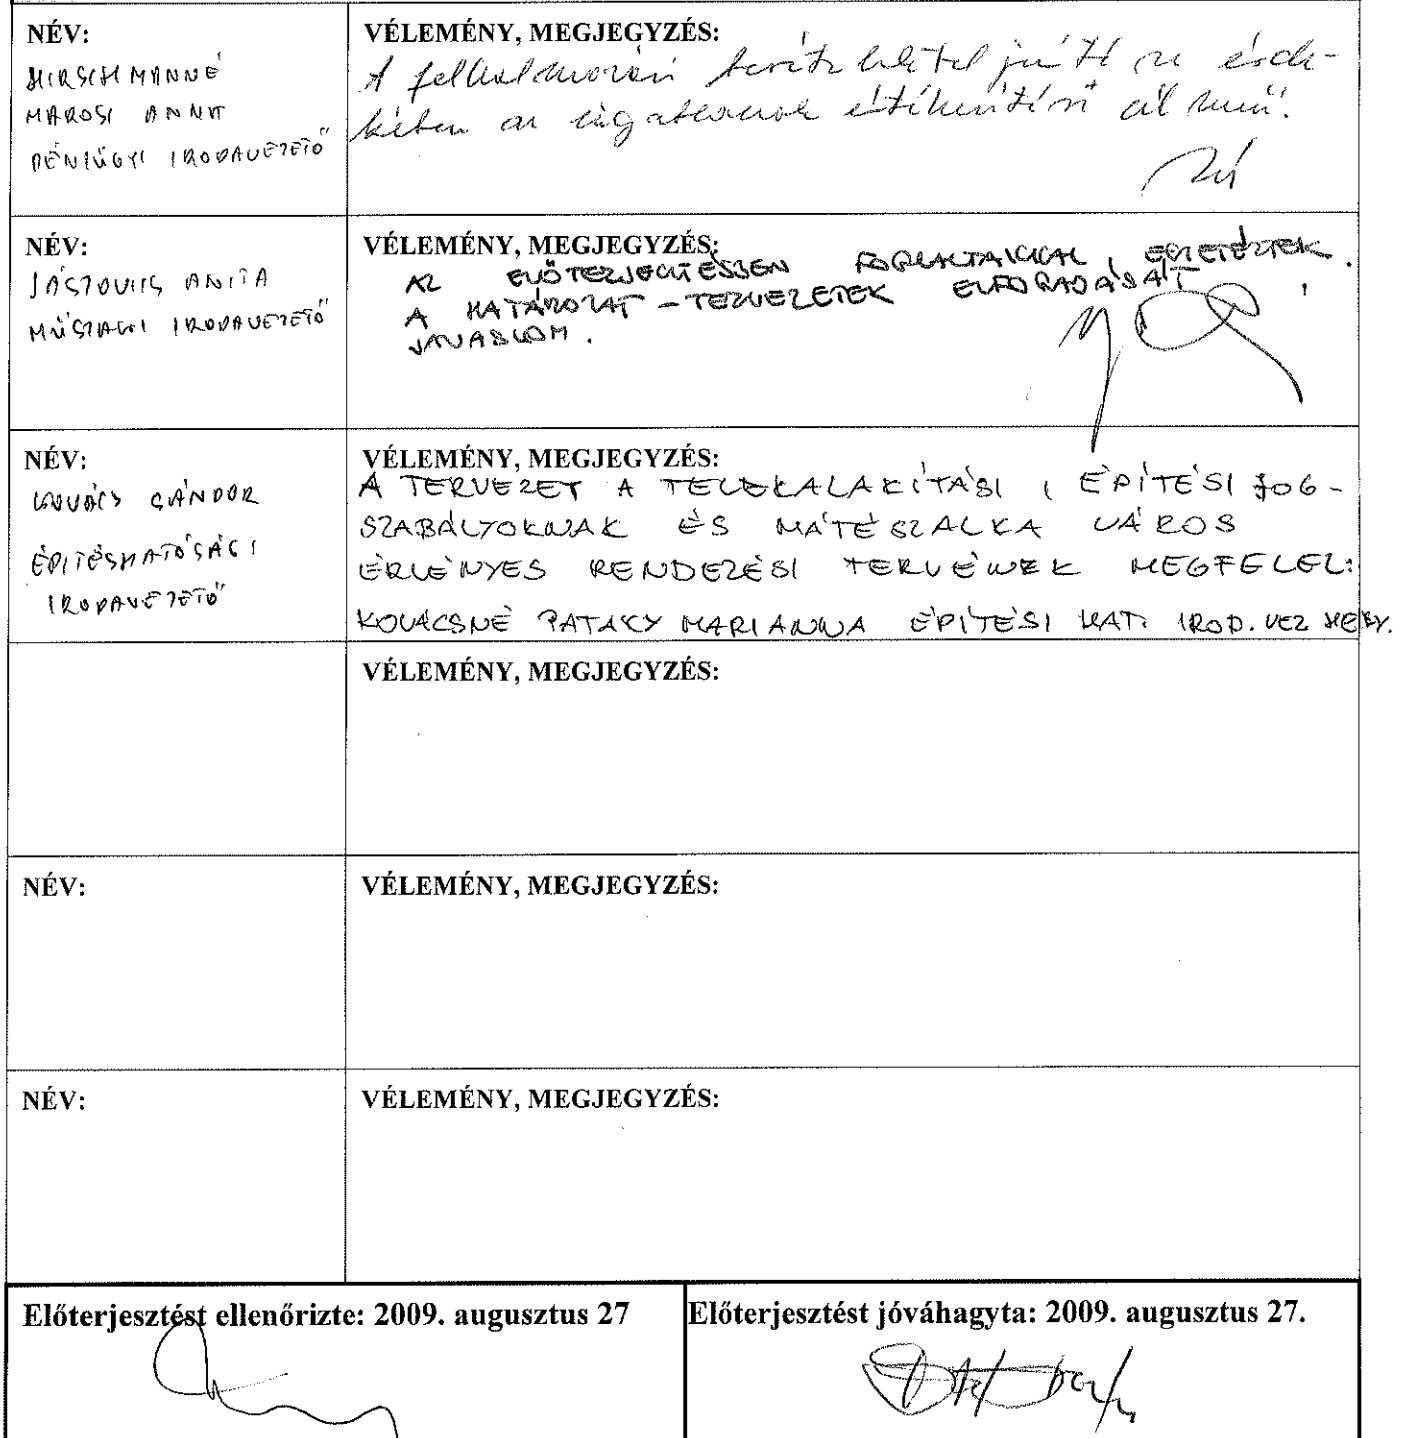 NÉV:
HIRSCHMANNÉ
MAROSI ANNA
PÉNZÜGYI IRODAVEZETŐ
VÉLEMÉNY, MEGJEGYZÉS:
A felhalmozási bevétel érde-
kében az ingatlanok értékesítési
NÉV:
JÁSZOVICS ANITA
MŰSZAKI IRODAVEZETŐ
VÉLEMÉNY, MEGJEGYZÉS:
AZ ELŐTERJESZTÉSBEN FOGLALTAKKAL EGYETÉRTEK.
A HATÁROZAT-TERVEZETEK ELFOGADÁSÁT
JAVASLOM.
NÉV:
KOVÁCS SÁNDOR
ÉPÍTÉSHATÓSÁGI
IRODAVEZETŐ
VÉLEMÉNY, MEGJEGYZÉS:
A TERVEZET A TELEKALAKÍTÁSI, ÉPÍTÉSI JOG-
SZABÁLYOKNAK ÉS MÁTÉSZALKA VÁROS
ÉRVÉNYES RENDEZÉSI TERVÉNEK MEGFELEL:
KOVÁCSNÉ PATAKY MARIANNA ÉPÍTÉSI HAT. IROD. VEZ HELY.
VÉLEMÉNY, MEGJEGYZÉS:
NÉV:
VÉLEMÉNY, MEGJEGYZÉS:
NÉV:
VÉLEMÉNY, MEGJEGYZÉS:
Előterjesztést ellenőrizte: 2009. augusztus 27
Előterjesztést jóváhagyta: 2009. augusztus 27.